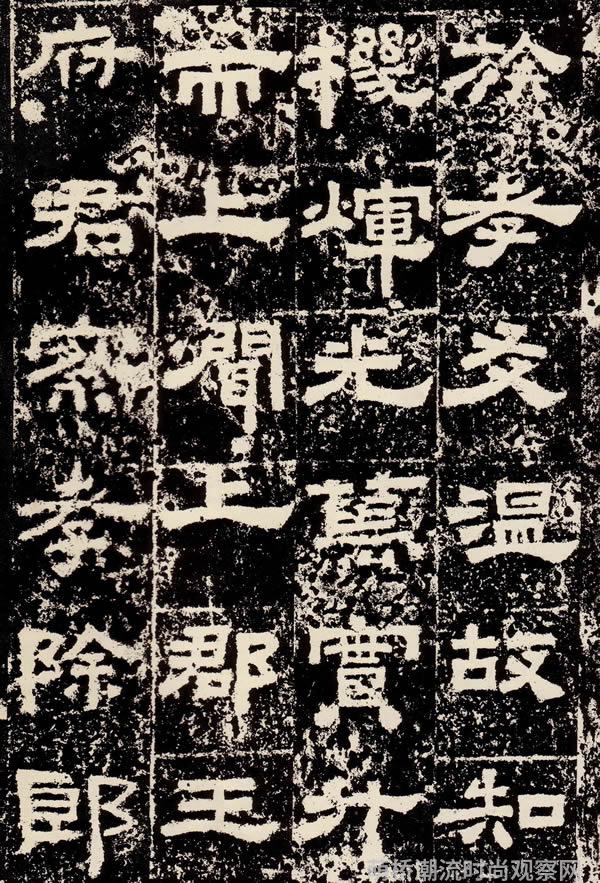 於孝友温故知
機煇光篤實升
而上聞上郡王
府君察孝除郎
桥潮流时尚观察网